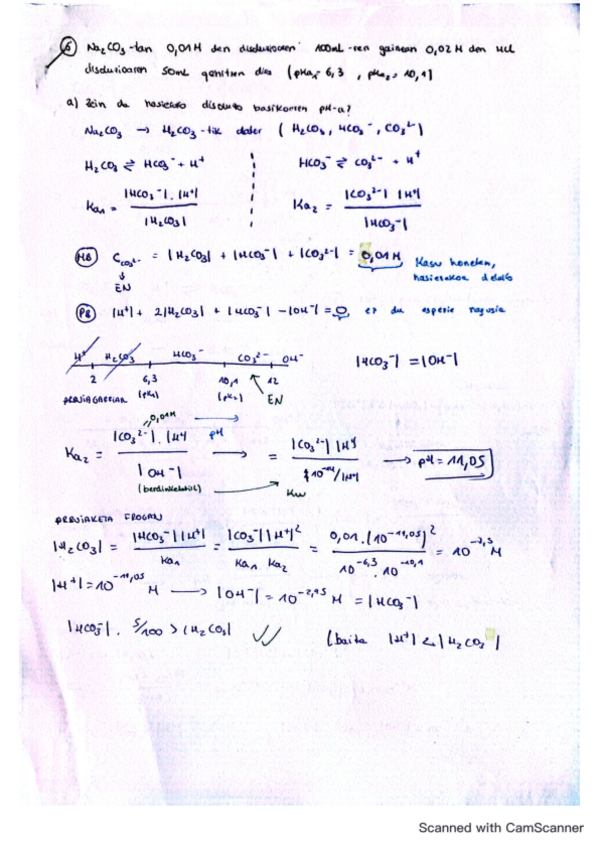 ⑤ Na₂CO₃-tan 0,01M den disoluzioaren 100mL-ren gainean 0,02M den HCl
disoluzioaren 50mL gehitzen dira (pKa₁= 6,3 , pKa₂= 10,1)
a) Zein da hasierako disoluzio basikoaren pH-a?
Na₂CO₃ → H₂CO₃-tik dator (H₂CO₃, HCO₃⁻, CO₃²⁻)
H₂CO₃ ⇌ HCO₃⁻ + H⁺ HCO₃⁻ ⇌ CO₃²⁻ + H⁺
Ka₁ = |HCO₃⁻|·|H⁺| / |H₂CO₃| Ka₂ = |CO₃²⁻| |H⁺| / |HCO₃⁻|
MB C CO₃²⁻ = |H₂CO₃| + |HCO₃⁻| + |CO₃²⁻| = 0,01M Kasu honetan,
hasierakoa
EN
PB |H⁺| + 2|H₂CO₃| + |HCO₃⁻| - |OH⁻| = 0, ez da espezie nagusia
H⁺ H₂CO₃ HCO₃⁻ CO₃²⁻ OH⁻ |HCO₃⁻| = |OH⁻|
2 6,3 10,1 12
(pK₁) (pK₂) EN
0,01M
Ka₂ = |CO₃²⁻|·|H⁺| / |OH⁻| pH → = |CO₃²⁻| |H⁺| / 10⁻¹⁴/|H⁺| → pH = 11,05
Kw
FROGAN
|H₂CO₃| = |HCO₃⁻||H⁺| / Ka₁ = |CO₃⁻||H⁺|² / Ka₁ Ka₂ = 0,01·(10⁻¹¹,⁰⁵)² / 10⁻⁶,³·10⁻¹⁰,¹ = 10⁻⁷,⁵ M
|H⁺| = 10⁻¹¹,⁰⁵ M → |OH⁻| = 10⁻²,⁹⁵ M = |HCO₃⁻|
|HCO₃⁻| · 5/100 > |H₂CO₃| ✓✓ (baita |H⁺| << |H₂CO₃|
Scanned with CamScanner